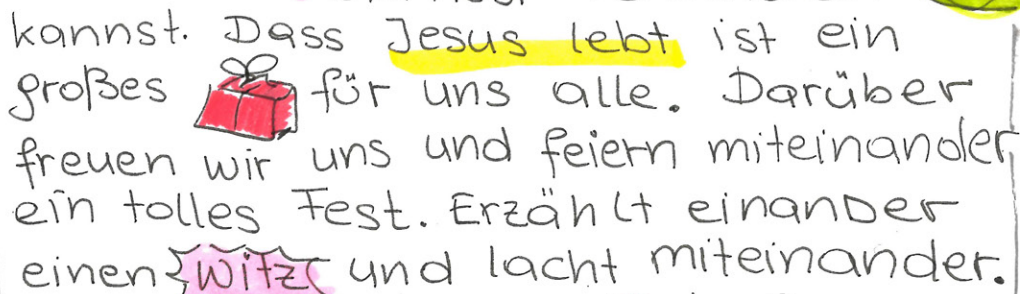 kannst. Dass Jesus lebt ist ein
großes für uns alle. Darüber
freuen wir uns und feiern miteinander
ein tolles Fest. Erzählt einander
einen Witz und lacht miteinander.